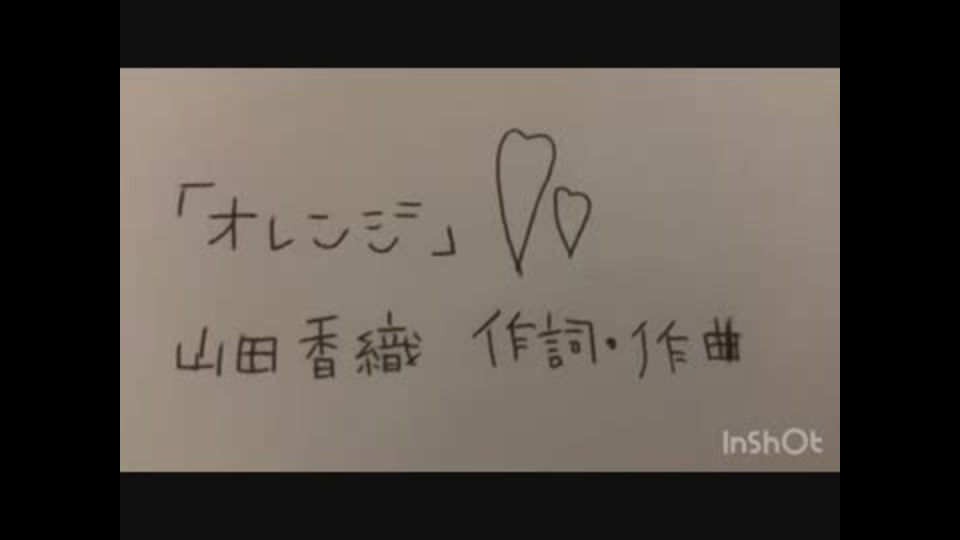 「オレンジ」
山田香織 作詞・作曲
InShOt